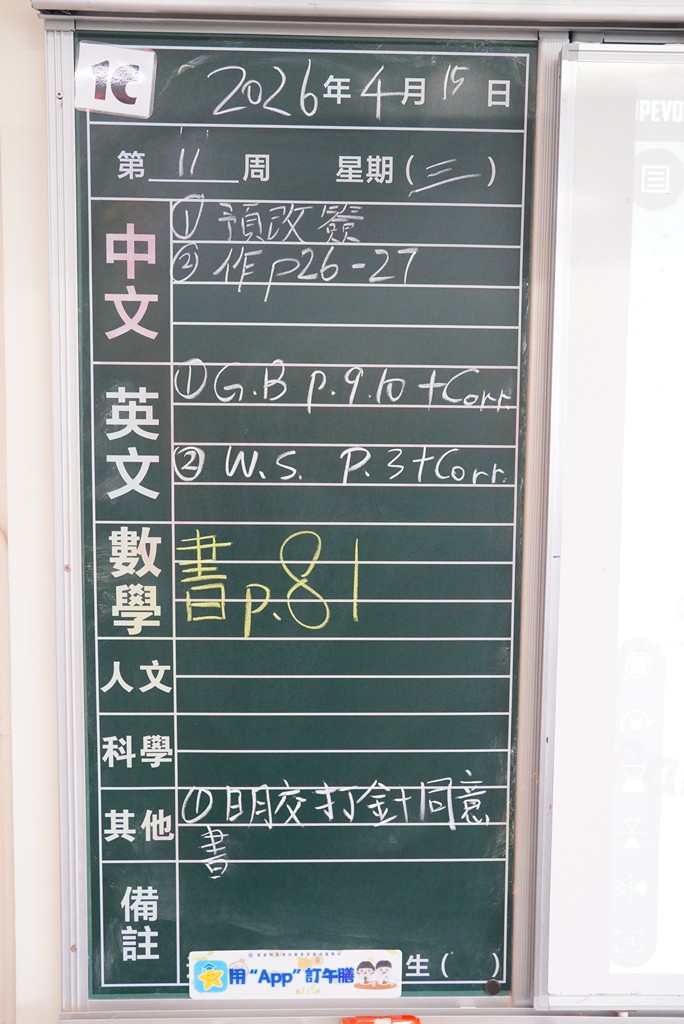 1C
2026年4月15日
第11周 星期(三)
中文
①預改簽
②作p26-27
英文
①G.B P.9.10 +Corr.
②W.S. P.3+Corr.
數學
書p.81
人文
科學
其他
①明交打針同意
書
備註
用“App”訂午膳
生( )
PEVO